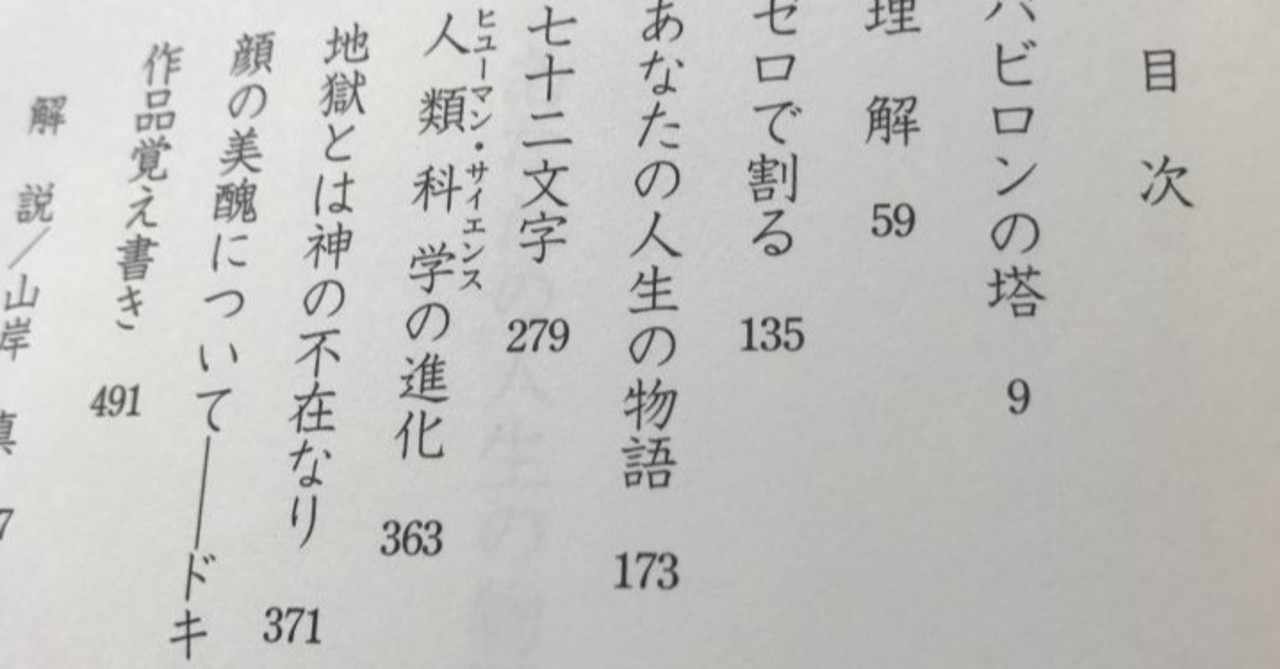 目次
バビロンの塔 9
理解 59
ゼロで割る 135
あなたの人生の物語 173
七十二文字 279
人類科学の進化 363
ヒューマン・サイエンス
地獄とは神の不在なり 371
顔の美醜について――ドキ
作品覚え書き 491
解説/山岸真 7